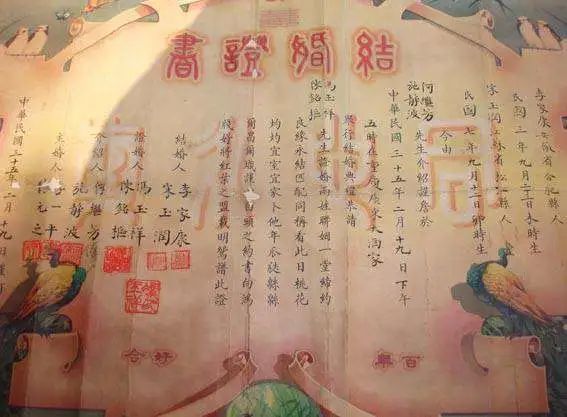 結婚證書
李家康安徽省合肥縣人
民國三年九月二十日未時生
宋玉潤江蘇省松江縣人
民國七年九月二十一日卯時生
今由
何繼芳
沈靜波
先生介紹謹於
中華民國三十五年二月十九日下午
五時在重慶大酒家
舉行結婚典禮恭請
馮玉祥
陳銘樞
先生證婚兩姓聯姻一堂締約
良緣永結匹配同稱看此日桃花
灼灼宜室宜家卜他年瓜瓞緜緜
爾昌爾熾謹以白頭之約書向鴻
箋好將紅葉之盟載明鴛譜此證
結婚人 李家康
宋玉潤
證婚人 馮玉祥
陳銘樞
介紹人 何繼芳
沈靜波
主婚人
中華民國三十五年二月十九日謹訂
百年
好合